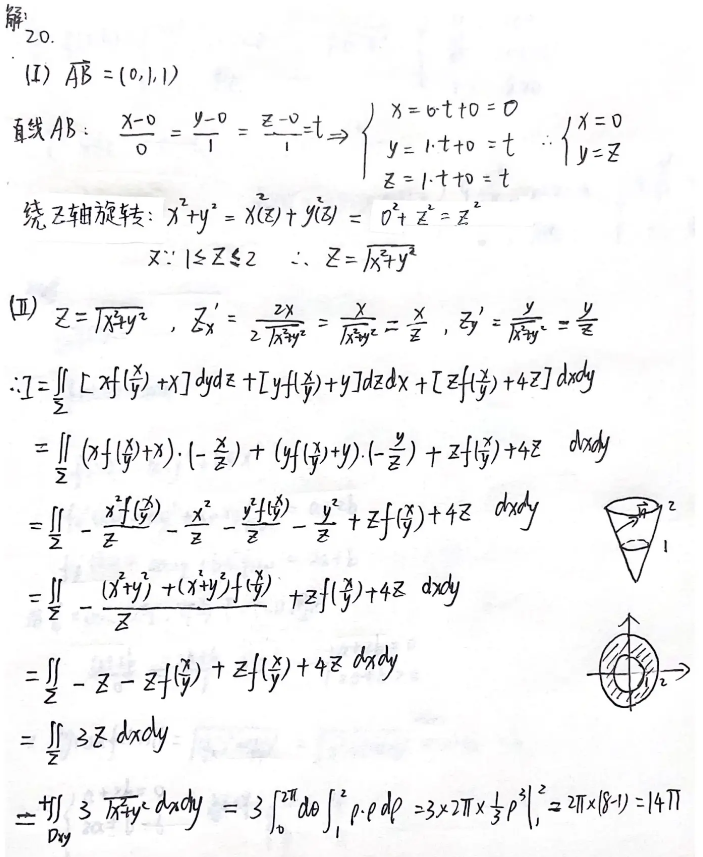 解:
20.
(I) $\overrightarrow{AB}$ = (0,1,1)
直线AB: $\frac{x-0}{0} = \frac{y-0}{1} = \frac{z-0}{1} = t \Rightarrow \begin{cases} x = 0 \cdot t + 0 = 0 \\ y = 1 \cdot t + 0 = t \\ z = 1 \cdot t + 0 = t \end{cases} \therefore \begin{cases} x = 0 \\ y = z \end{cases}$
绕Z轴旋转: $x^2+y^2 = x^2(z) + y^2(z) = 0^2 + z^2 = z^2$
又∵ 1≤Z≤2 ∴ $Z = \sqrt{x^2+y^2}$
(II) $Z = \sqrt{x^2+y^2}$ , $Z_x' = \frac{2x}{2\sqrt{x^2+y^2}} = \frac{x}{\sqrt{x^2+y^2}} = \frac{x}{z}$ , $Z_y' = \frac{y}{\sqrt{x^2+y^2}} = \frac{y}{z}$
$\therefore I = \iint_{\Sigma} [xf(\frac{x}{y})+x]dydz + [yf(\frac{x}{y})+y]dzdx + [zf(\frac{x}{y})+4z]dxdy$
$= \iint_{\Sigma} (xf(\frac{x}{y})+x) \cdot (-\frac{x}{z}) + (yf(\frac{x}{y})+y) \cdot (-\frac{y}{z}) + zf(\frac{x}{y})+4z \quad dxdy$
$= \iint_{\Sigma} -\frac{x^2f(\frac{x}{y})}{z} - \frac{x^2}{z} - \frac{y^2f(\frac{x}{y})}{z} - \frac{y^2}{z} + zf(\frac{x}{y})+4z \quad dxdy$
$\vec{n}$ 2
1
$= \iint_{\Sigma} -\frac{(x^2+y^2)+(x^2+y^2)f(\frac{x}{y})}{z} + zf(\frac{x}{y})+4z \quad dxdy$
$= \iint_{\Sigma} -z - zf(\frac{x}{y}) + zf(\frac{x}{y}) + 4z \, dxdy$
1 2
$= \iint_{\Sigma} 3z \, dxdy$
$= +\iint_{Dxy} 3\sqrt{x^2+y^2} \, dxdy = 3\int_0^{2\pi} d\theta \int_1^2 \rho \cdot \rho \, d\rho = 3 \times 2\pi \times \frac{1}{3}\rho^3 |_1^2 = 2\pi \times (8-1) = 14\pi$